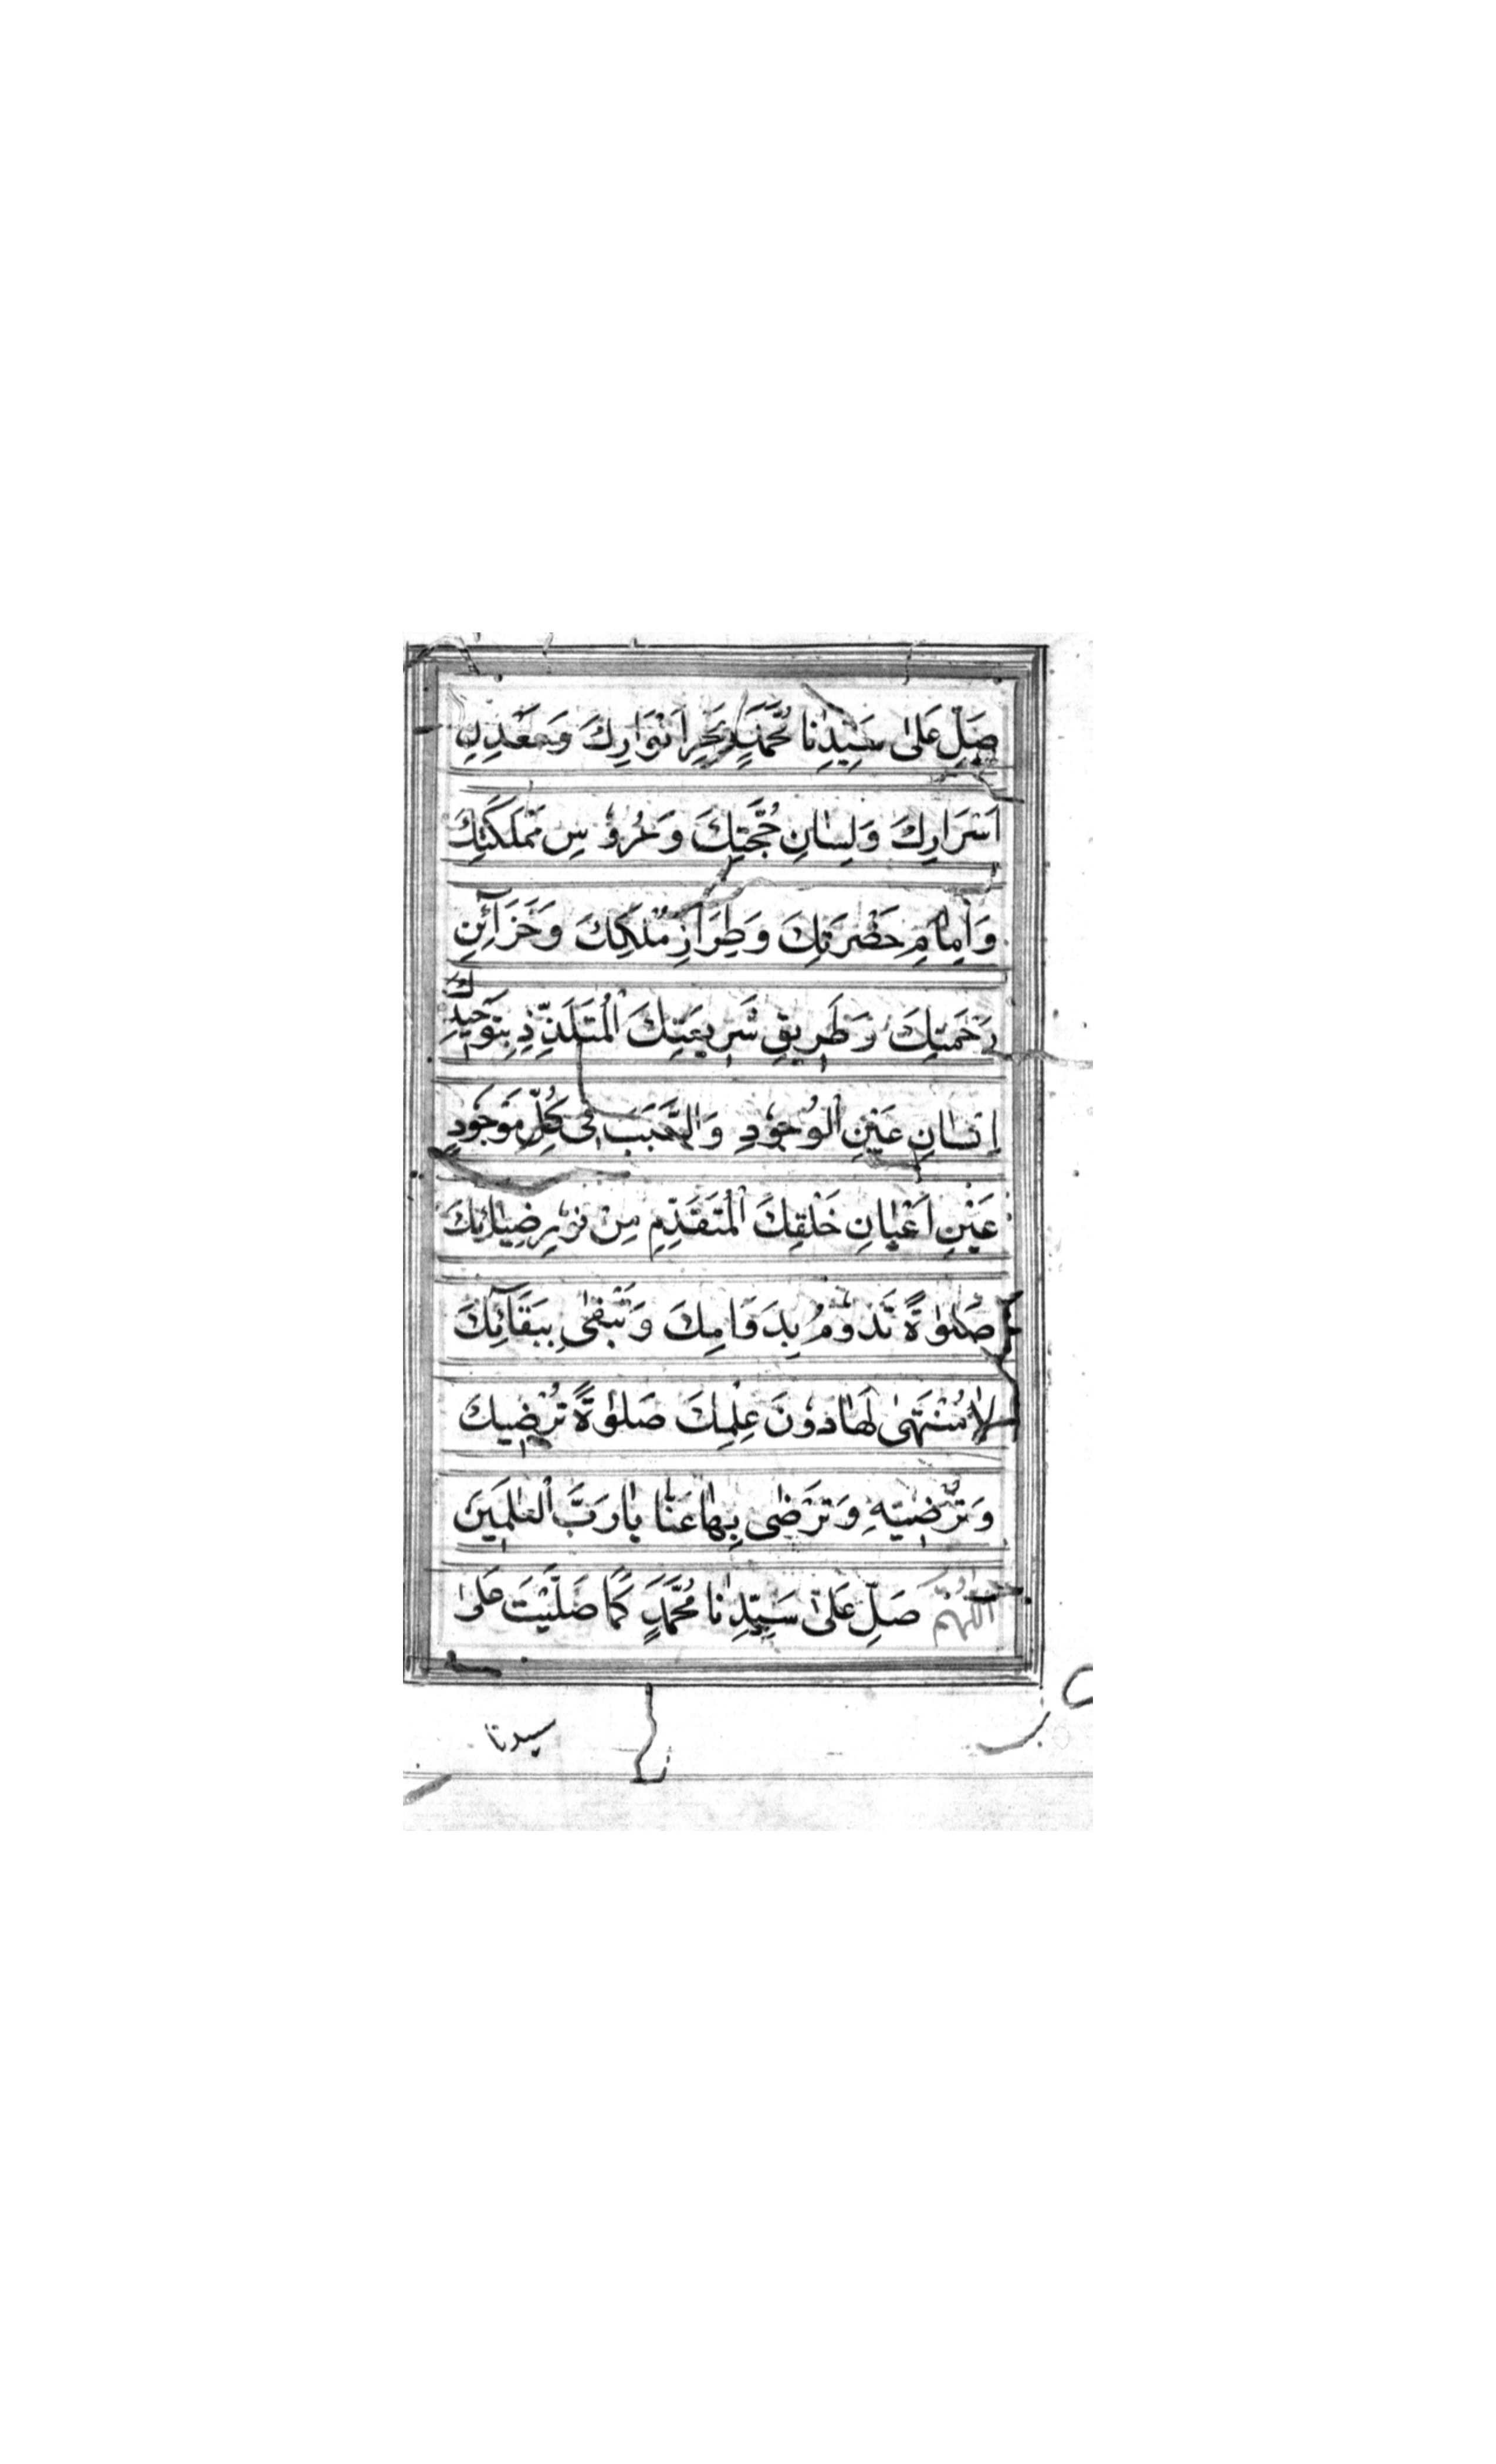 صَلِّ عَلٰى سَيِّدِنَا مُحَمَّدٍ بَحْرِ اَنْوَارِكَ وَمَعْدِنِ
اَسْرَارِكَ وَلِسَانِ حُجَّتِكَ وَعُرُوْسِ مَمْلَكَتِكَ
وَاِمَامِ حَضْرَتِكَ وَطِرَازِ مُلْكِكَ وَخَزَآئِنِ
رَحْمَتِكَ وَطَرِيقِ شَرِيعَتِكَ الْمُتَلَذِّذِ بِتَوْحِيدِكَ
اِنْسَانِ عَيْنِ الْوُجُوْدِ وَالسَّبَبِ فِى كُلِّ مَوْجُوْدٍ
عَيْنِ اَعْيَانِ خَلْقِكَ الْمُتَقَدِّمِ مِنْ نُوْرِ ضِيَائِكَ
صَلٰوةً تَدُوْمُ بِدَوَامِكَ وَتَبْقٰى بِبَقَآئِكَ
لَا مُنْتَهٰى لَهَا دُوْنَ عِلْمِكَ صَلٰوةً تُرْضِيكَ
وَتُرْضِيْهِ وَتَرْضٰى بِهَا عَنَّا يَا رَبَّ الْعٰلَمِيْنَ
اَللّٰهُمَّ صَلِّ عَلٰى سَيِّدِنَا مُحَمَّدٍ كَمَا صَلَّيْتَ عَلٰى
سيدنا